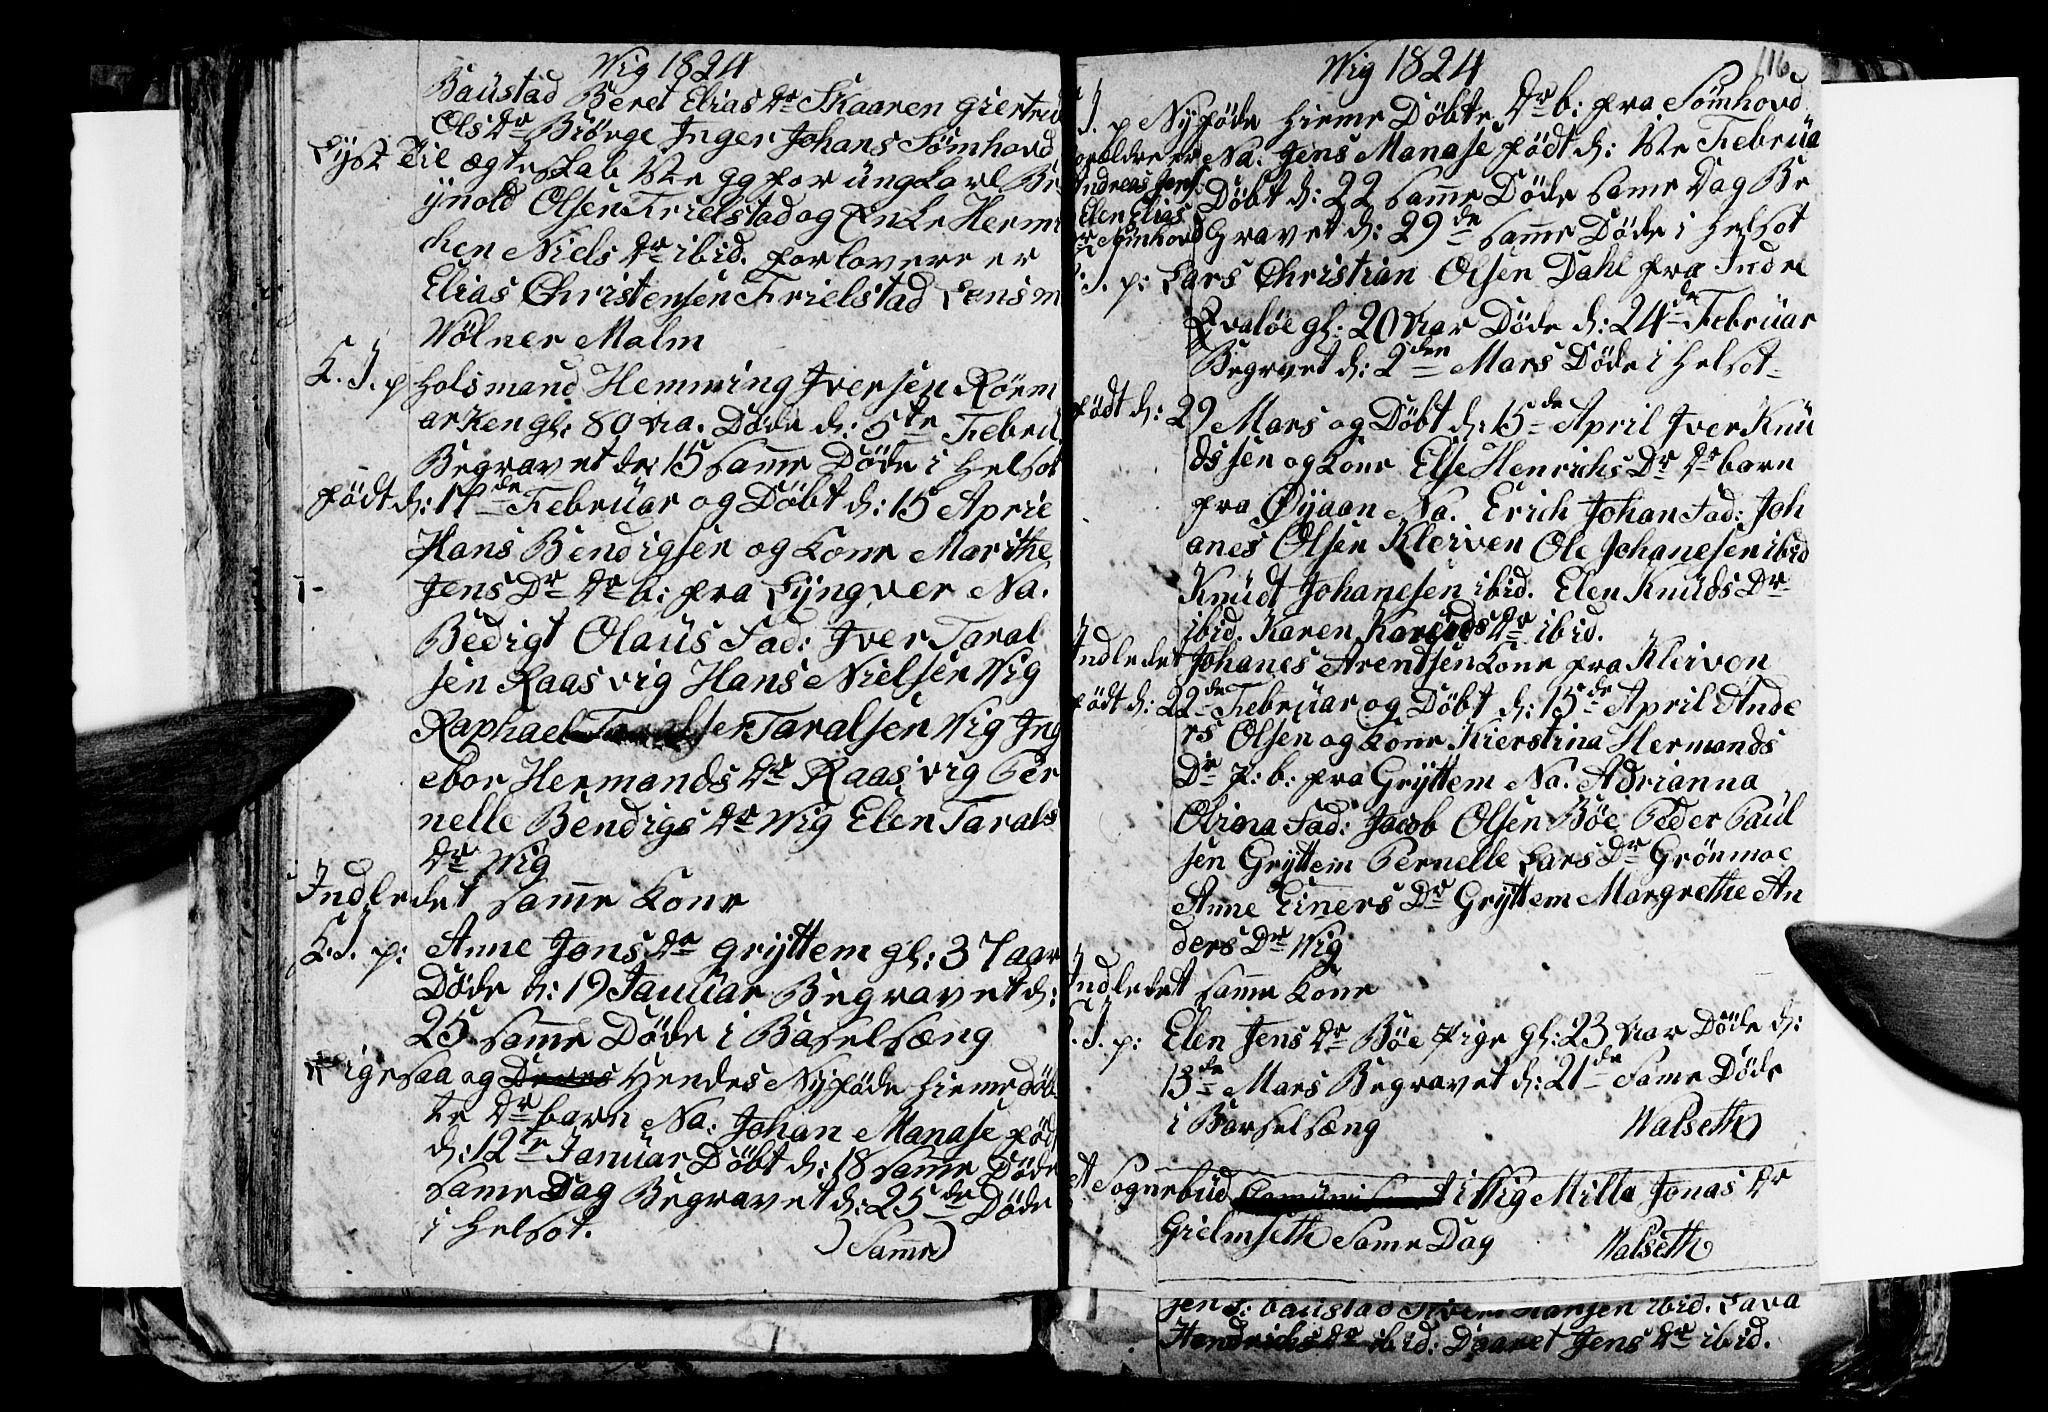 Wig 1824
Baustad Beret Elias Dr Skaaren Giertrud
Ols Dr Biørge Inger Johans Sømhovd
Lyst Til Ægteskab 1ste gg for ung Karl Br
ynold Olsen Trielstad og Enke Herm
chen Niels Dr ibid. forlovere er
Elias Christensen Trielstad Lensm
Wölner Malm
K. J. p Holsmand Hemming Iversen Rörm
arken gl: 80 Aa. Döde d: 5te Febru
Begravet de: 15 samme Döde i Helsot
födt d: 17de Februar og Döbt d: 15 April
Hans Bendigsen og Kone Marithe
Jens Dr Dr b: fra Lyngver Na.
Bedigt Olaus Fad: Iver Taral
sen Raasvig Hans Nielsen Wig
Raphael Taralsen Wig Ing
ebor Hermands Dr Raasvig Per
nelle Bendigs Dr Wig Elen Tarals
Dr Wig
Indledet samme Kone
K. J. p: Anne Jons Dr Gryttem gl: 37 aar
Döde d: 19 Januar Begravet d:
25 samme Döde i Baselsæng
Ligesaa og Deres Hendes Nyföde Hieme Döb
te Dr barn Na: Johan Manase föd
d: 12te Januar Döbt d: 18 samme Döde
same Dag Begravet d: 25de Döde
i Helsot.
Samme
Wig 1824
116
J. p Nyföde Hieme Döbte Dr b: fra Sömhovd
foreldre er Na. Jens Manase födt d: 1ste Februa
Andreas Jens Döbt d: 22 samme Döde same Dag Be
Elen Elias Gravet d: 29de samme Döde i Helsot
Dr Sømhovd
J. p: Lars Christian Olsen Dahl fra Indre
Qvaløe gl: 20 Aar Döde d: 24de Februar
Begravet d: 2den Mars Döde i Helsot
födt d: 29 Mars og Döbt d: 15de April Iver Knu
dssen og Kone Else Henrichs Dr Dr barn
fra Øyaan Na. Erich Johan Fad: Joh
anes Olsen Kleiven Ole Johanesen ibid
Knudt Johanesen ibid. Elen Knuds Dr
ibid. Karen Dr ibid.
Indledet Johanes Arentsen Kone fra Kleiven
födt d: 22de Februar og Döbt d: 15de April Ande
rs Olsen og Kone Kierstina Hermands
Dr p: b: fra Gryttem Na. Adrianna
Olrina Fad: Jacob Olsen Böe Peder Paul
sen Gryttem Pernelle Lars Dr Grönmoe
Anne Einers Dr Gryttem Margrethe An
ders Dr Wig
Indledet samme Kone
J. p: Elen Jens Dr Böe Pige gl: 23 Aar Döde d:
13de Mars Begravet d: 21de Same Döde
i Barselsæng Walseth
et Sognebud i Wig Milla Jonas Dr
Grielmseth Same Dag Walseth
Jens: Baustad Hansen ibid. Lava
Hendrichs Dr ibid: Daaret Jens Dr ibid.